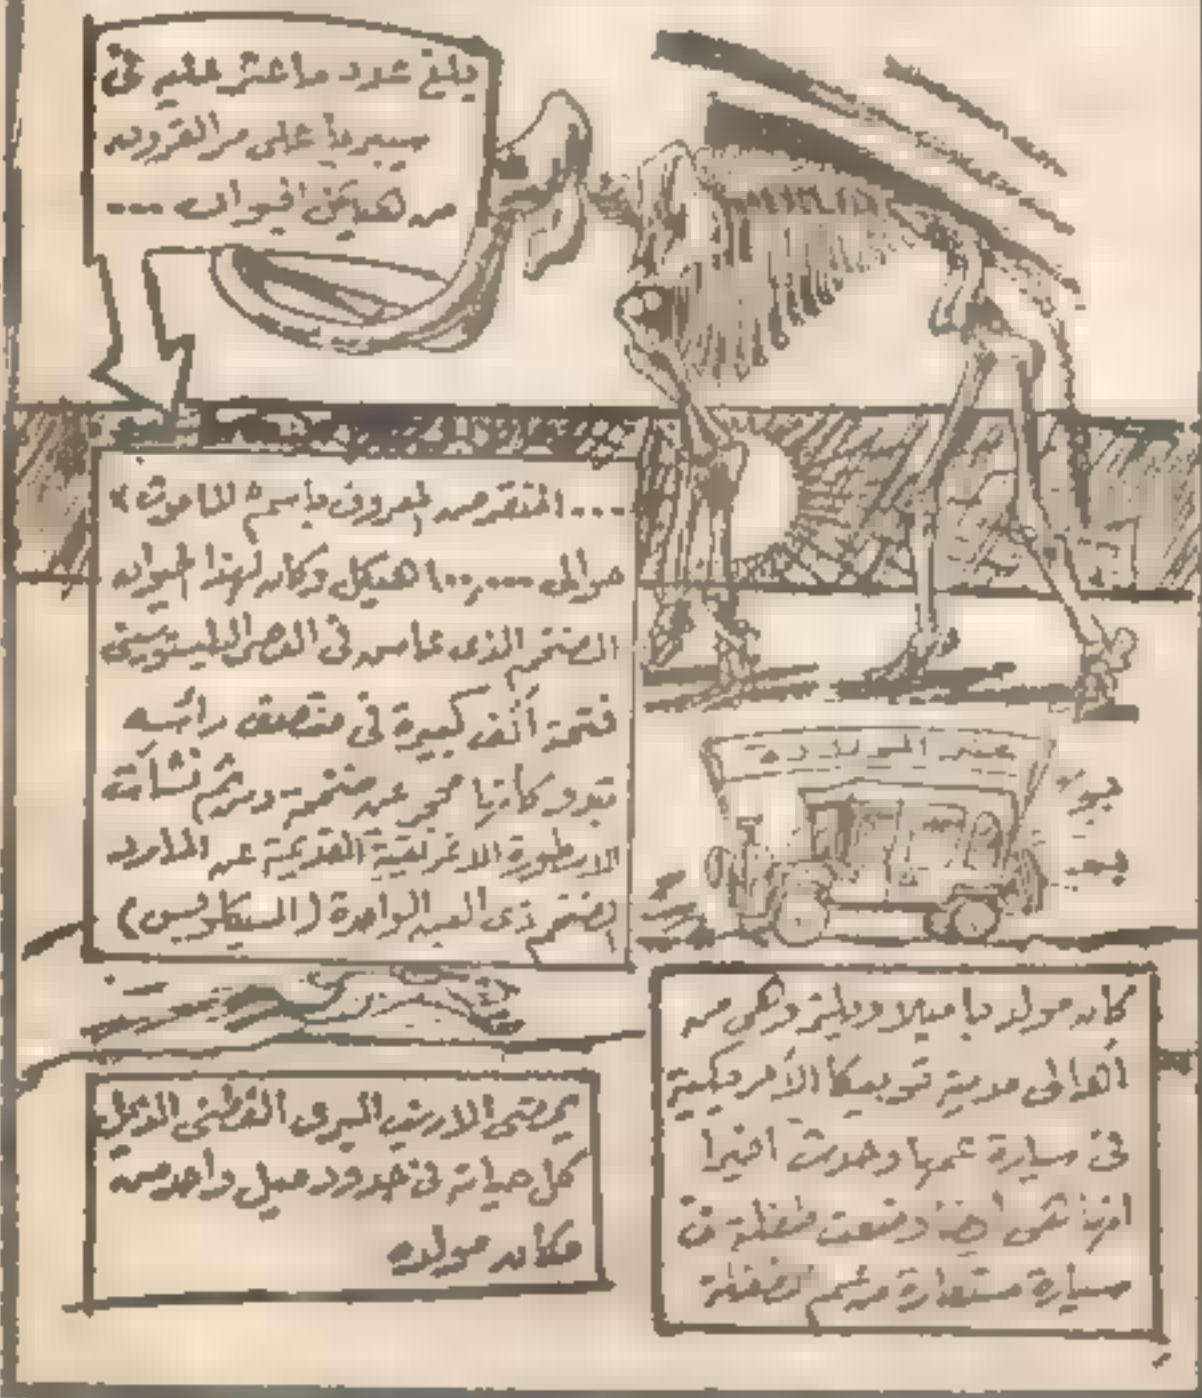 يبلغ عدد ما عثر عليه في
سيبريا على مر القرون
من هيكل الحيوان ...
... المنقرض المعروف بإسم " الماموث "
حوالى ١٠٠,٠٠٠ هيكل وكان لهذا الحيوان
الضخم الذى عاش في العصر البليستوسينى
فتحة أنف كبيرة في منتصف رأسه
تبدو كأنها محجر عين ضخمة ومن ثم نشأت
الاسطورة الاغريقية القديمة عن المارد
الضخم ذى العين الواحدة (السيكلوبس)
عنبر الولادة
كان مولد باميلا ويليتز وهى من
أهالى مدينة توبيكا الأمريكية
فى سيارة عمها وحدث اخيرا
انها هى ايضا وضعت طفلة فى
سيارة مستعارة من عم الطفلة
يمضى الارنب البرى القطنى الذيل
كل حياته فى حدود ميل واحد من
مكان مولده